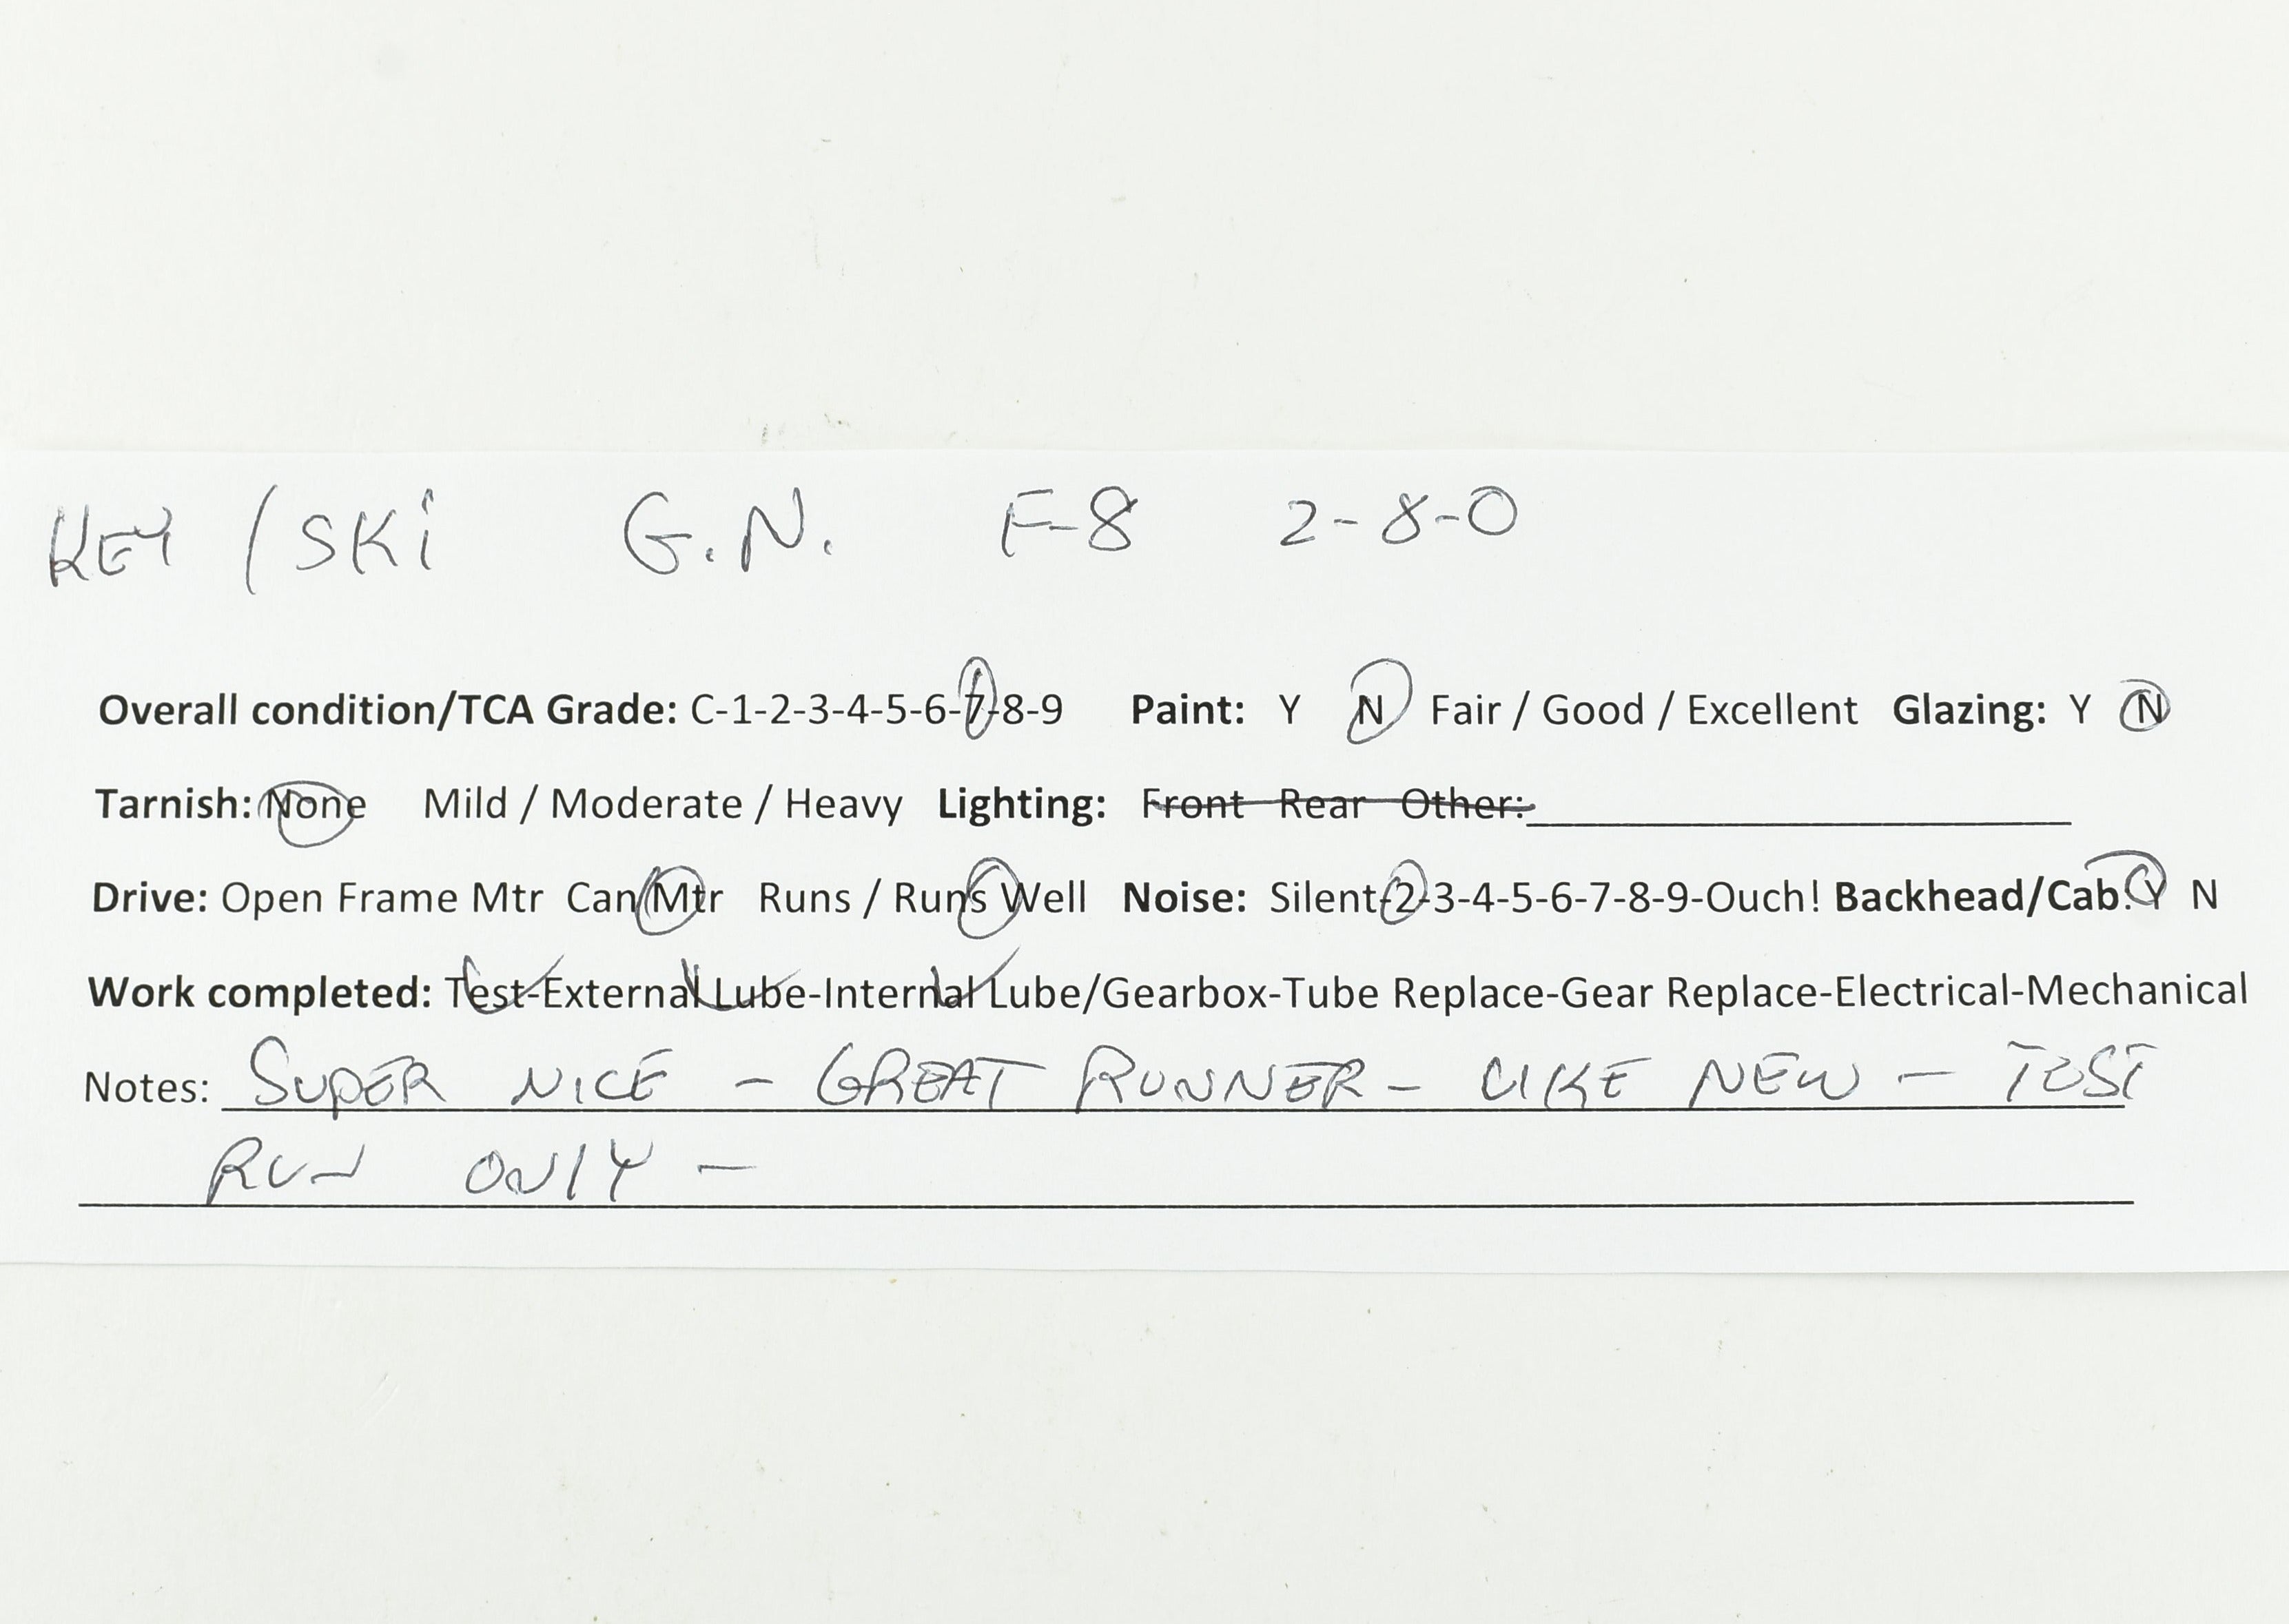 KEY / SKi G.N. F-8 2-8-0
Overall condition/TCA Grade: C-1-2-3-4-5-6-7-8-9 Paint: Y N Fair / Good / Excellent Glazing: Y N
Tarnish: None Mild / Moderate / Heavy Lighting: Front Rear Other:
Drive: Open Frame Mtr Can Mtr Runs / Runs Well Noise: Silent-2-3-4-5-6-7-8-9-Ouch! Backhead/Cab: Y N
Work completed: Test-External Lube-Internal Lube/Gearbox-Tube Replace-Gear Replace-Electrical-Mechanical
Notes: SUPER NICE - GREAT RUNNER - LIKE NEW - TEST
RUN ONLY -